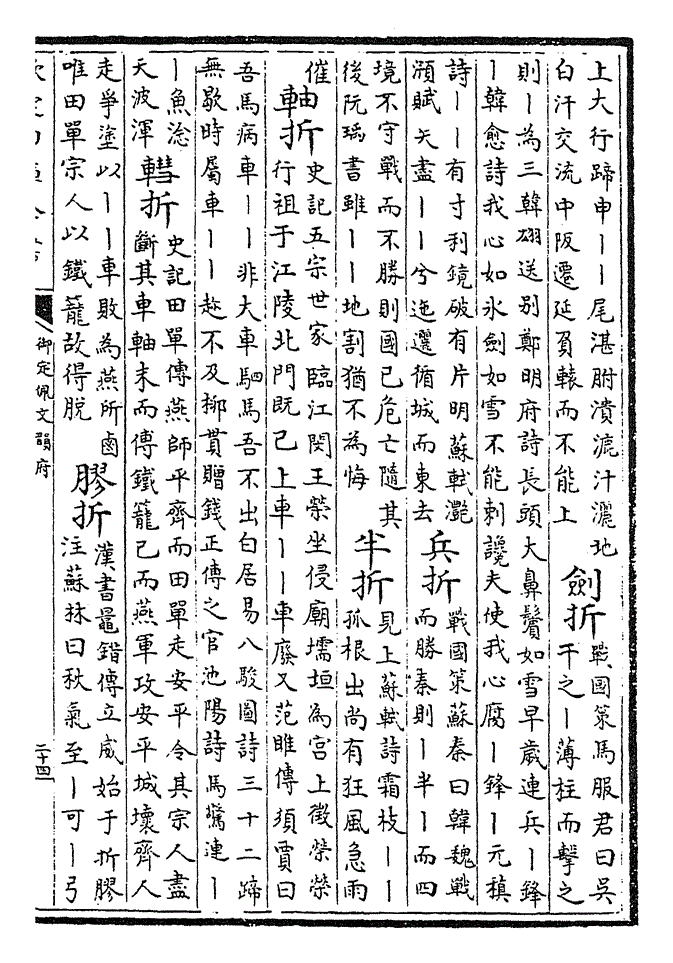 上大行蹄申丨丨尾湛胕潰漉汁灑地
白汗交流中阪遷延負轅而不能上
劍折
戰國策馬服君曰吳
干之丨薄柱而擊之
則丨為三韓翃送别鄭明府詩長頭大鼻鬢如雪早歲連兵丨鋒
丨韓愈詩我心如氷劍如雪不能刺讒夫使我心腐丨鋒丨元稹
詩丨丨有寸利鏡破有片明蘇軾灔
澦賦矢盡丨丨兮迤邐循城而東去
兵折
戰國策蘇秦曰韓魏戰
而勝秦則丨半丨而四
境不守戰而不勝則國已危亡隨其
後阮瑀書雖丨丨地割猶不為悔
半折
見上蘇軾詩霜枝丨丨
孤根出尚有狂風急雨
催
軸折
史記五宗世家臨江閔王榮坐侵廟壖垣為宫上徵榮榮
行祖于江陵北門既已上車丨丨車廢又范睢傳須賈曰
吾馬病車丨丨非大車駟馬吾不出白居易八駿圖詩三十二蹄
無歇時屬車丨丨趂不及栁貫贈錢正傳之官池陽詩馬驚連丨
丨魚淰
天波渾
轊折
史記田單傳燕師平齊而田單走安平令其宗人盡
斷其車軸末而傅鐵籠已而燕軍攻安平城壞齊人
走爭塗以丨丨車敗為燕所鹵
唯田單宗人以鐵籠故得脱
膠折
漢書鼂錯傳立威始于折膠
注蘇林曰秋氣至丨可丨弓
御定佩文韻府
二十四